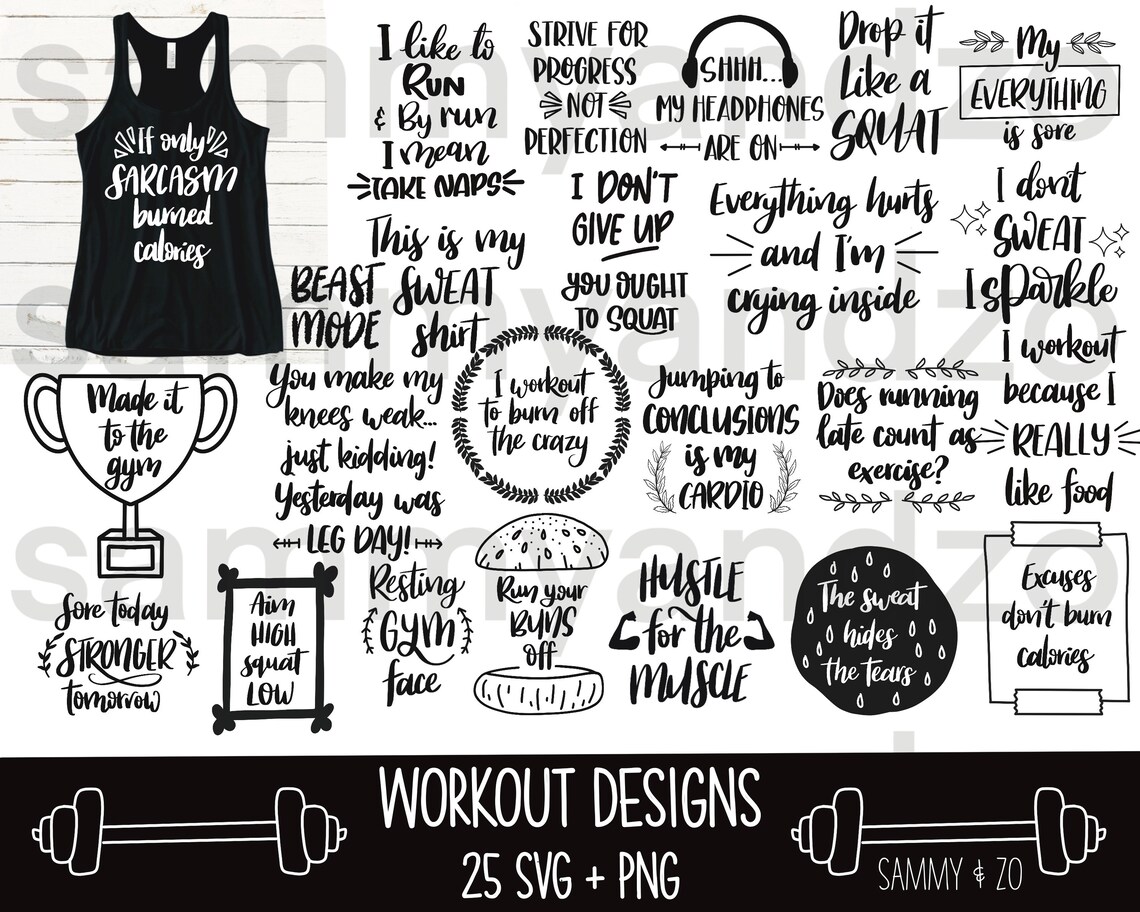 If only
SARCASM
burned
calories
I like to
RUN
& By run
I mean
TAKE NAPS
STRIVE FOR
PROGRESS
NOT
PERFECTION
SHHH...
MY HEADPHONES
ARE ON
Drop it
Like a
SQUAT
My
EVERYTHING
is sore
This is my
SWEAT
shirt
BEAST
MODE
I DON'T
GIVE UP
YOU OUGHT
TO SQUAT
Everything hurts
and I'm
crying inside
I don't
SWEAT
I sparkle
Made it
to the
gym
You make my
knees weak...
just kidding!
Yesterday was
LEG DAY!
I workout
to burn off
the crazy
Jumping to
CONCLUSIONS
is my
CARDIO
Does running
late count as
exercise?
I workout
because I
REALLY
like food
Sore today
STRONGER
tomorrow
Aim
HIGH
squat
LOW
Resting
GYM
face
Run your
BUNS
Off
HUSTLE
for the
MUSCLE
The sweat
hides
the tears
Excuses
don't burn
calories
sammyandzo
sammyandzo
sammyandzo
WORKOUT DESIGNS
25 SVG + PNG
SAMMY & ZO